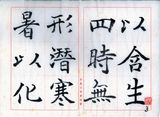 以含生
四時無
形潛寒
暑以化
3